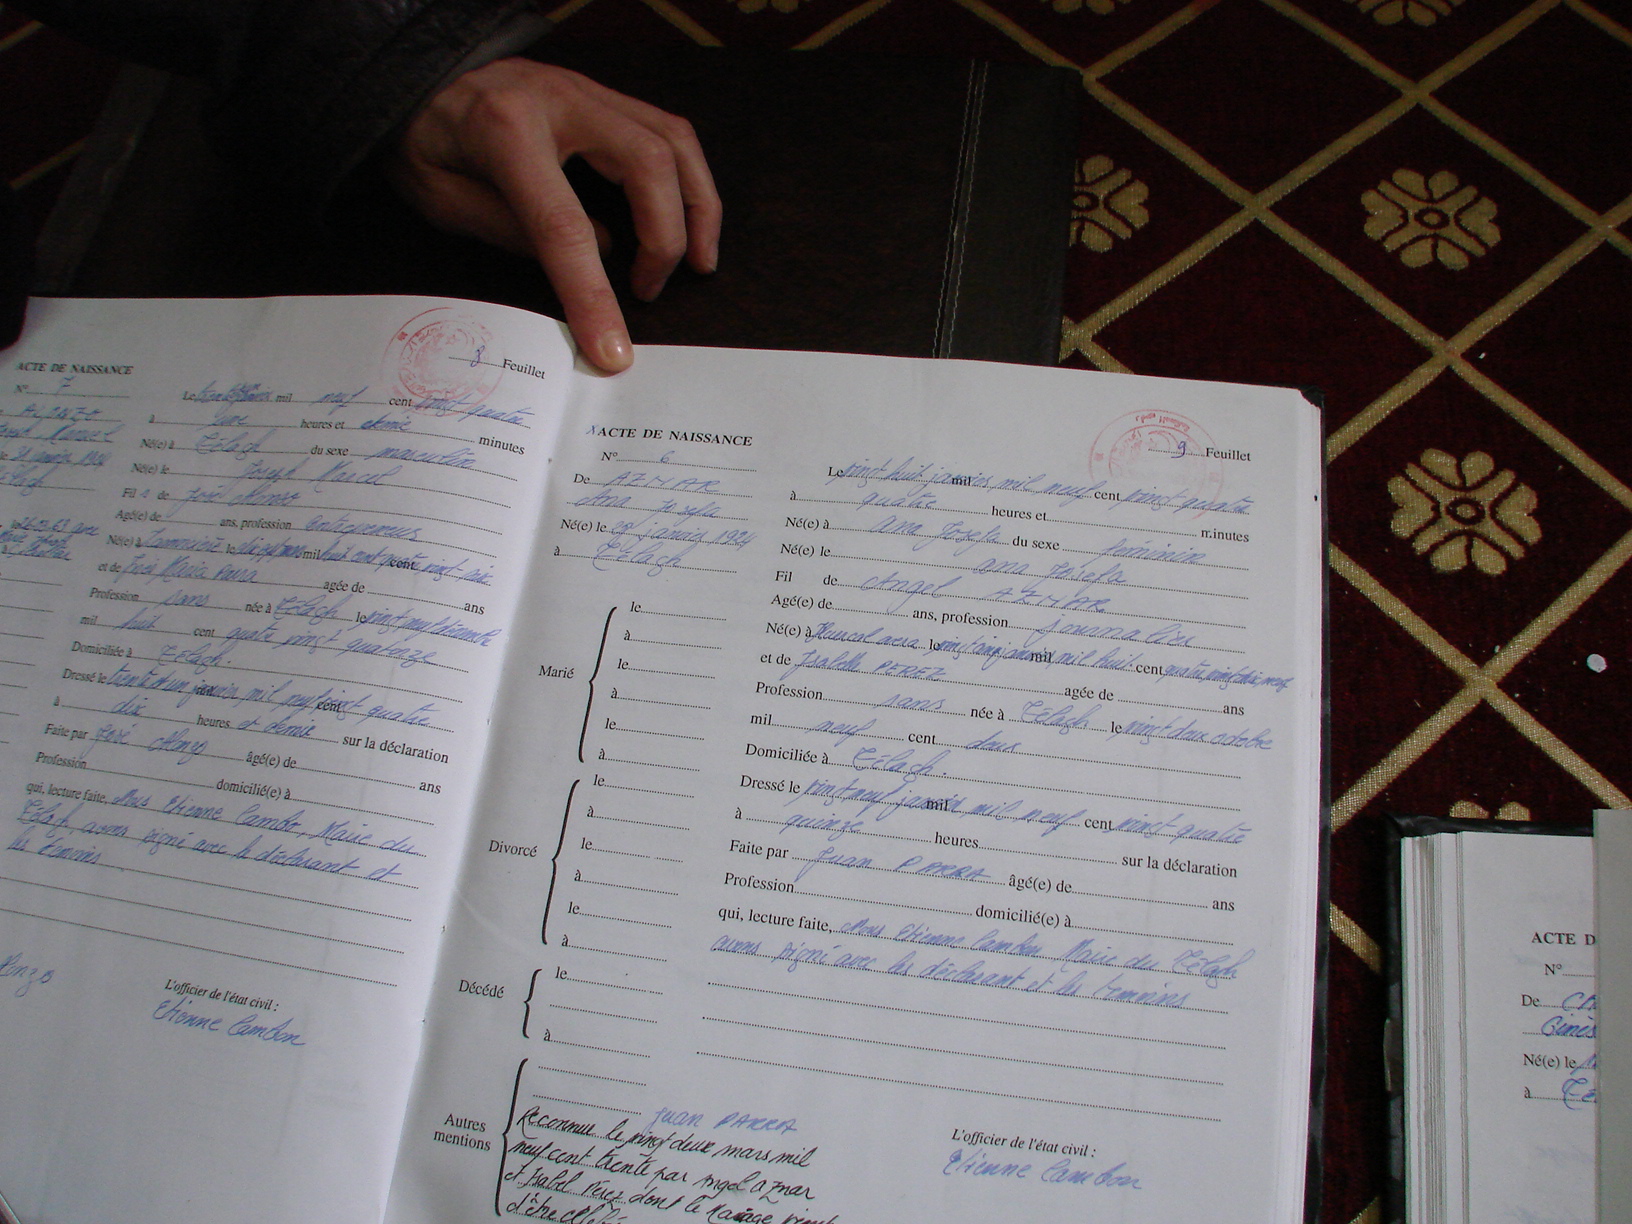 8 Feuillet
ACTE DE NAISSANCE
N° 7
Le mil neuf cent vingt quatre
à une heures et demie minutes
Né(e) à Télagh du sexe masculin
Né(e) le Joseph Marcel
Fil s de José Alonzo
Agé(e) de ans, profession Entrepreneur
Né(e) à le dix sept mars mil huit cent quatre vingt six
et de Maria Parra agée de ans
Profession sans née à Télagh le vingt neuf décembre
mil huit cent quatre vingt quatorze
Domiciliée à Télagh.
Dressé le trente et un janvier mil neuf cent vingt quatre
à dix heures et demie sur la déclaration
Faite par José Alonzo âgé(e) de ans
Profession domicilié(e) à
qui, lecture faite, Nous Etienne Cambon, Maire du
Télagh, avons signé avec le déclarant et
les témoins
Alonzo
L'officier de l'état civil :
Etienne Cambon
9 Feuillet
ACTE DE NAISSANCE
N° 6
De AZNAR
Ana Josefa
Né(e) le janvier 1924
à Télagh
Marié
le
à
le
à
le
à
Divorcé
le
à
le
à
le
à
Décédé
le
à
Autres
mentions
Juan PARRA
Reconnue le vingt deux mars mil
neuf cent trente par Angel Aznar
et Isabel Pérez dont le Mariage vient
d'être célébré
Le vingt huit janvier mil mil neuf cent vingt quatre
à quatre heures et minutes
Né(e) à ana Josefa du sexe féminin
Né(e) le ana Josefa
Fil de Angel AZNAR
Agé(e) de ans, profession Journalier
Né(e) à Huercal overa le vingt cinq janvier mil mil huit cent quatre vingt dix neuf
et de Isabelle PEREZ agée de ans
Profession sans née à Télagh le vingt deux octobre
mil neuf cent deux
Domiciliée à Télagh.
Dressé le vingt neuf janvier mil mil neuf cent vingt quatre
à quinze heures sur la déclaration
Faite par Juan PARRA âgé(e) de ans
Profession domicilié(e) à
qui, lecture faite, Nous Etienne Cambon Maire du Télagh
avons signé avec les déclarant et les témoins
L'officier de l'état civil :
Etienne Cambon
ACTE D
N°
De
Ginés
Né(e) le
à Té